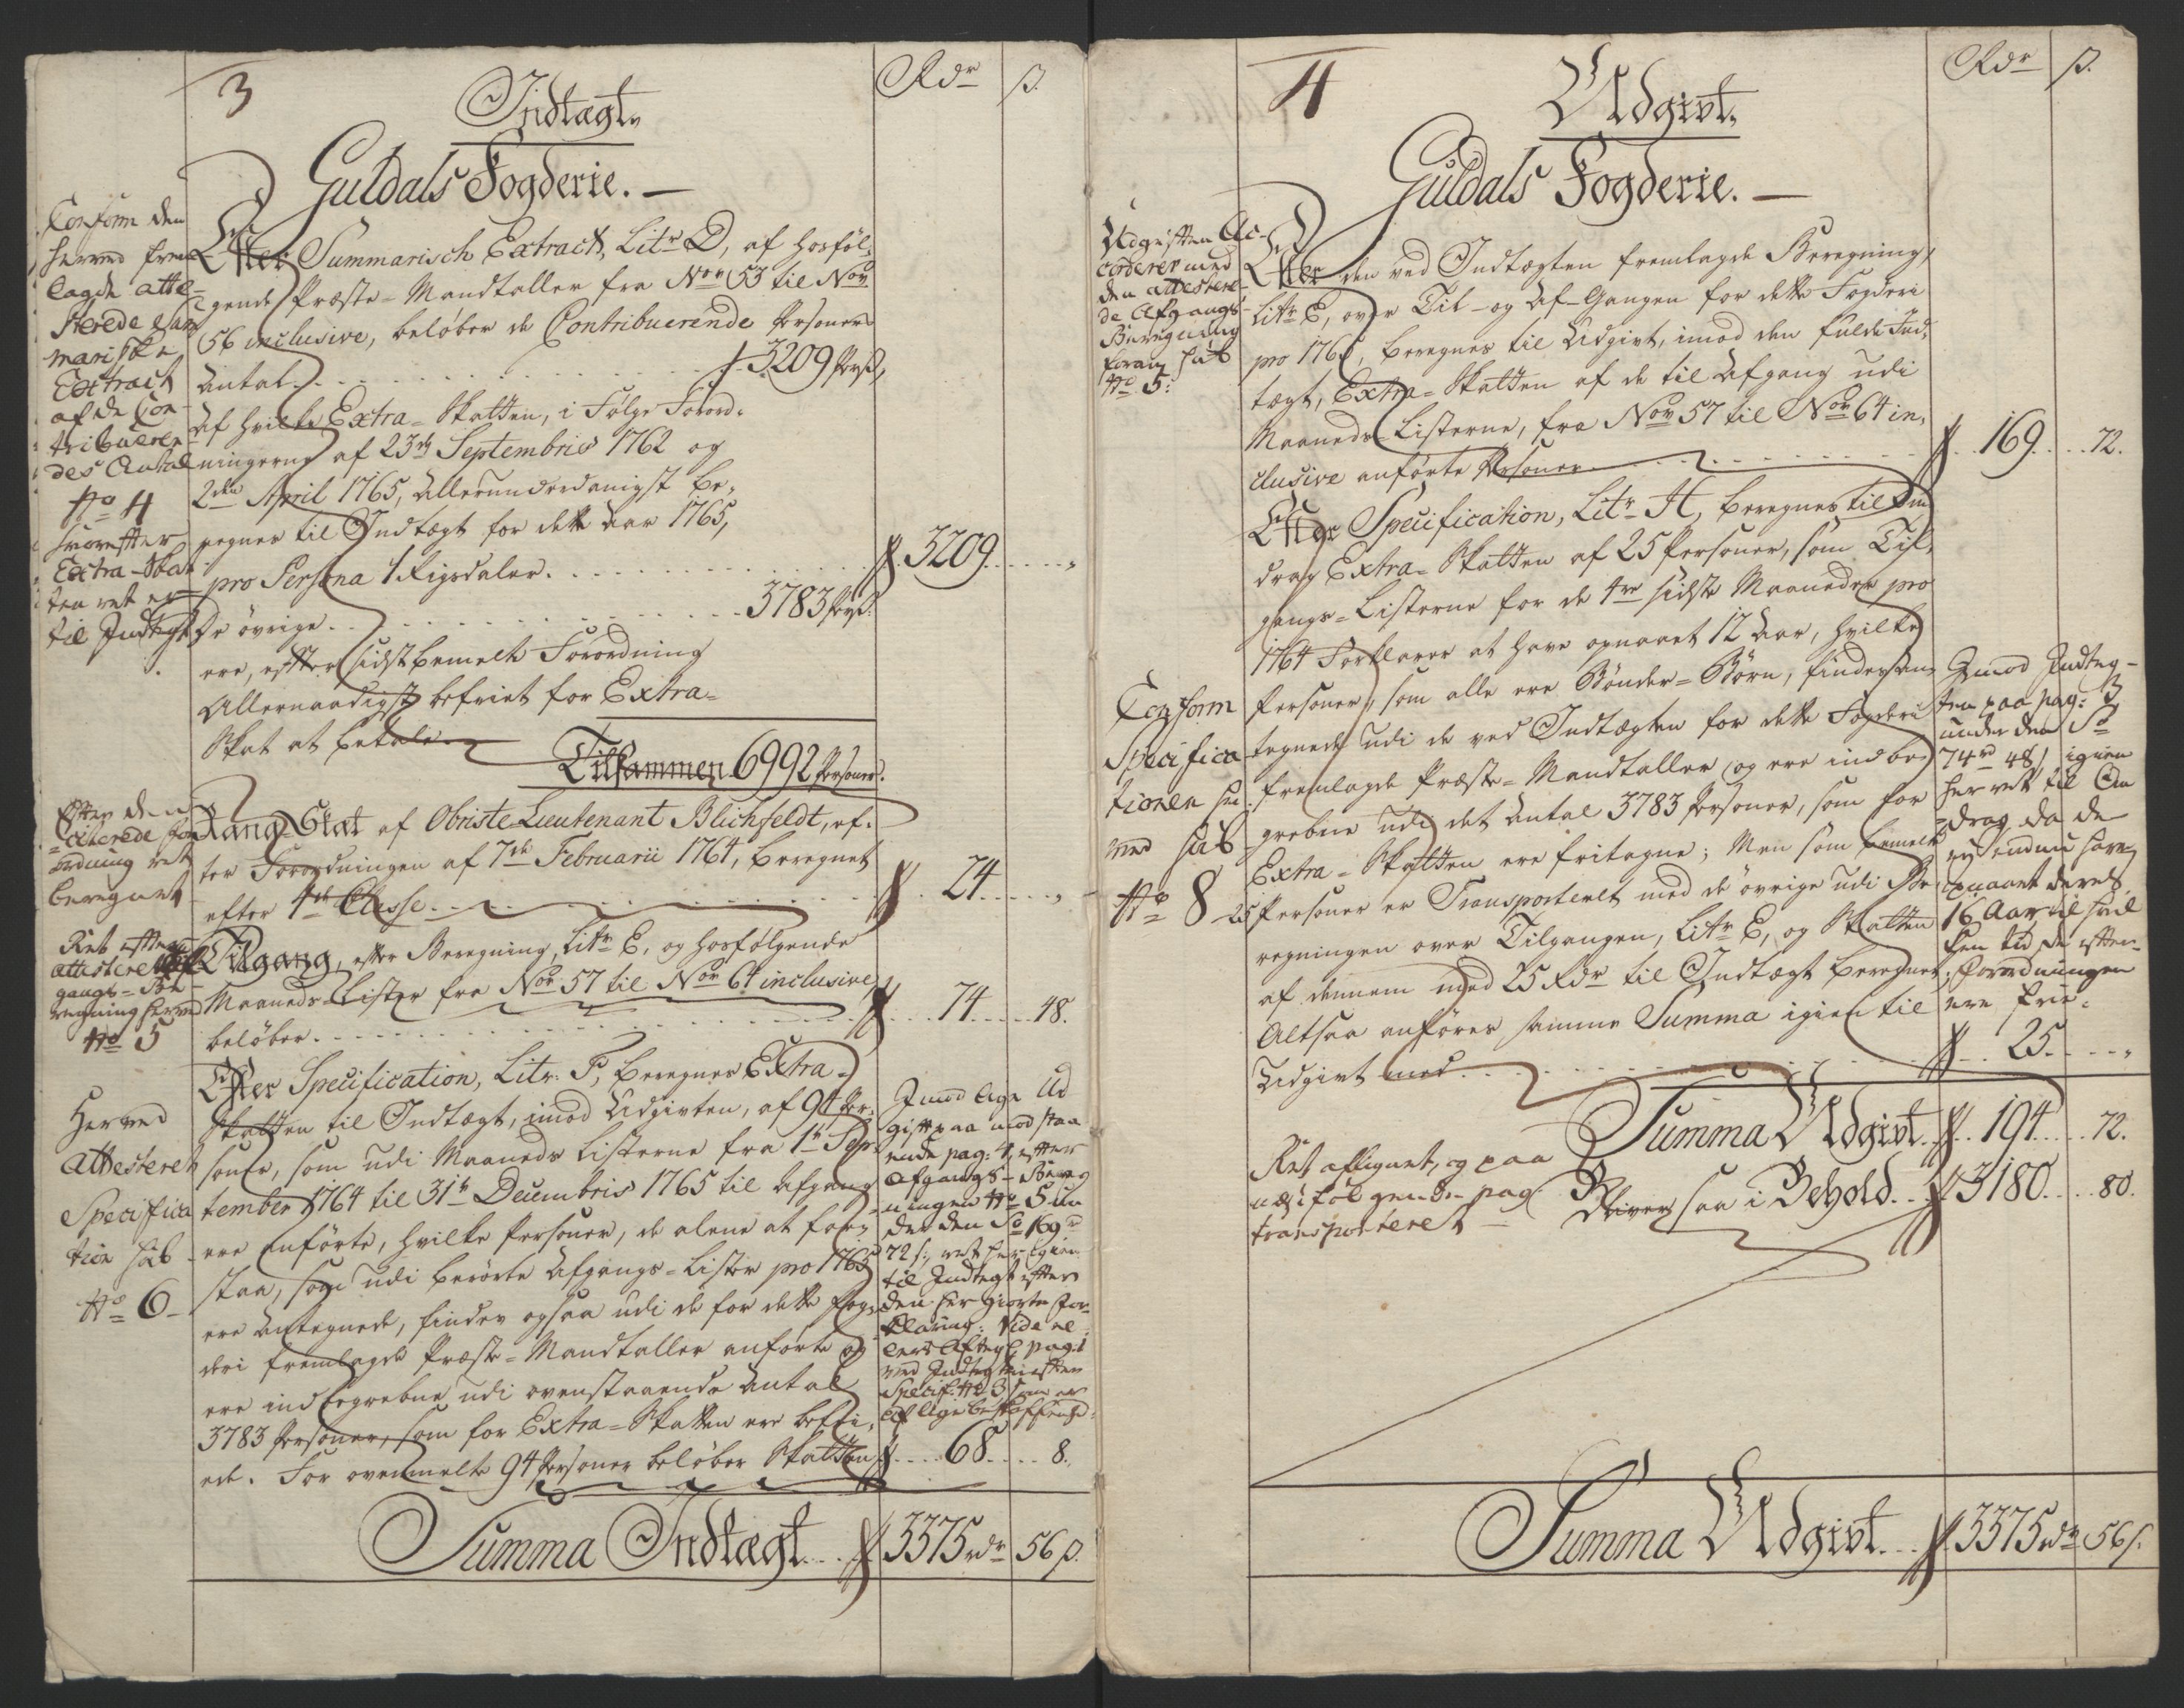 3
Indtægt,,
Rdr ß.
Guldals Fogderie. —
Conform den
herved frem
lagde atte-
sterede Sum
mariske
Extract
af de Con-
tribueren
des Antal
No 4
hvorefter
Extra-Skat
ten ret er
til Indtegt
Efter Summarisch Extract, Litr D, af hosføl-
gende Præste-Mandtaller fra Nor 53 til Nor
56 inclusive, beløber de Contribuerende Personers
Antal . . . 3209 Pers,
Af hvilke Extra-Skatten, i Følge Forord-
ningerne af 23de Septembris 1762 og
2den April 1765, Allerunderdanigst be-
regnes til Indtægt for dette Aar 1765,
pro Persona 1 Rigsdaler . . . 3209 . . . „
De øvrige . . . 3783 Pers:
ere, efter sidstbemelte Forordning
Allernaadigst befriet for Extra-
Skat at betale.
Tilsammen 6992 Personer.
Efter den
Citerede For
ordning ret
beregnet
Rang-Skat af Obriste-Lieutenant Blichfeldt, ef-
ter Forordningen af 7de Februarii 1764, beregnet
efter 4de Classe . . . 24 . . . „
Ret efter
attesterede
gangs-Be-
regning herved
No 5
Tilgang, efter Beregning, Litr E, og hosfølgende
Maaneds-Lister fra Nor 57 til Nor 64 inclusive,
beløber . . . 74 . . . 48.
Herved
Attesteret
Specifica
tion sub
No 6
Efter Specification, Litr: F, beregnes Extra-
Skatten til Indtægt, imod Udgivten, af 94 Per-
soner, som udi Maaneds Listerne fra 1te Sep-
tember 1764 til 31te Decembris 1765 til Afgang
ere anførte, hvilke Personer, de alene at for-
staa, som udi berørte Afgangs-Lister pro 1765
ere Antegnede, findes ogsaa udi de for dette Fog-
deri fremlagde Præste-Mandtaller anførte og
ere indbegrebne udi ovenstaaende Antal
3783 Personer, som for Extra-Skatten ere befri-
ede. For ovenmelte 94 Personer beløber Skatten . . . 68 . . . 8.
Imod lige Ud
gift paa modstaa
ende pag: 4, efter
Afgangs-Bereg
ningen No 5 un
der den So 169 rd
72 s:, ret her igien
til Indtegt efter
den her giorte For-
klaring: Vide el
lers pag: 1
ved Indtegten efter
Specif: No 3 som er
af lige beskaffenhed.
Summa Indtægt . . . 3375 rdr 56 ß.
4
Udgivt,,
Rdr ß.
Guldals Fogderie. —
Udgiften Ac-
corderer med
den attestere-
de Afgangs-
Beregning
foran sub
No 5:
Efter den ved Indtægten fremlagde Beregning,
Litr E, over Til- og Af-Gangen for dette Fogderi
pro 1765, beregnes til Udgivt, imod den fulde Ind-
tægt, Extra-Skatten af de til Afgang udi
Maaneds-Listerne, fra Nor 57 til Nor 64 in-
clusive anførte Personer . . . 169 . . . 72.
Conform
Specifica
tionen her
ved sub
No 8
Efter Specification, Litr H, beregnes til Aff-
drag Extra-Skatten af 25 Personer, som Til-
gangs-Listerne for de 4re sidste Maaneder pro
1764 Forklarer at have opnaaet 12 Aar, hvilke
Personer, som alle ere Bønder-Børn, findes An-
tegnede udi de ved Indtægten for dette Fogderi
fremlagde Præste-Mandtaller og ere indbe-
grebne udi det Antal 3783 Personer, som for
Extra-Skatten ere fritagne; Men som bemelte
25 Personer er Transporterede med de øvrige udi Be-
regningen over Tilgangen, Litr E, og Skatten
af dennem med 25 Rdr til Indtægt beregnet,
Altsaa anføres samme Summa igien til
Udgivt med . . . 25 . . . „
Imod Indteg-
ten paa pag: 3
under den So
74 rd 48 s igien
her ret til Aff
drag, da de
ey endnu have
opnaaet deres
16 Aar, til hvil
ken tid de efter
Forordningen
ere frie.
Summa Udgivt . . . 194 . . . 72.
Ret afregnet, og paa
næstfølgende pag
transporteret
Bliver saa i Behold . . . 3180 . . . 80.
Summa Udgivt . . . 3375 rdr 56 ß.